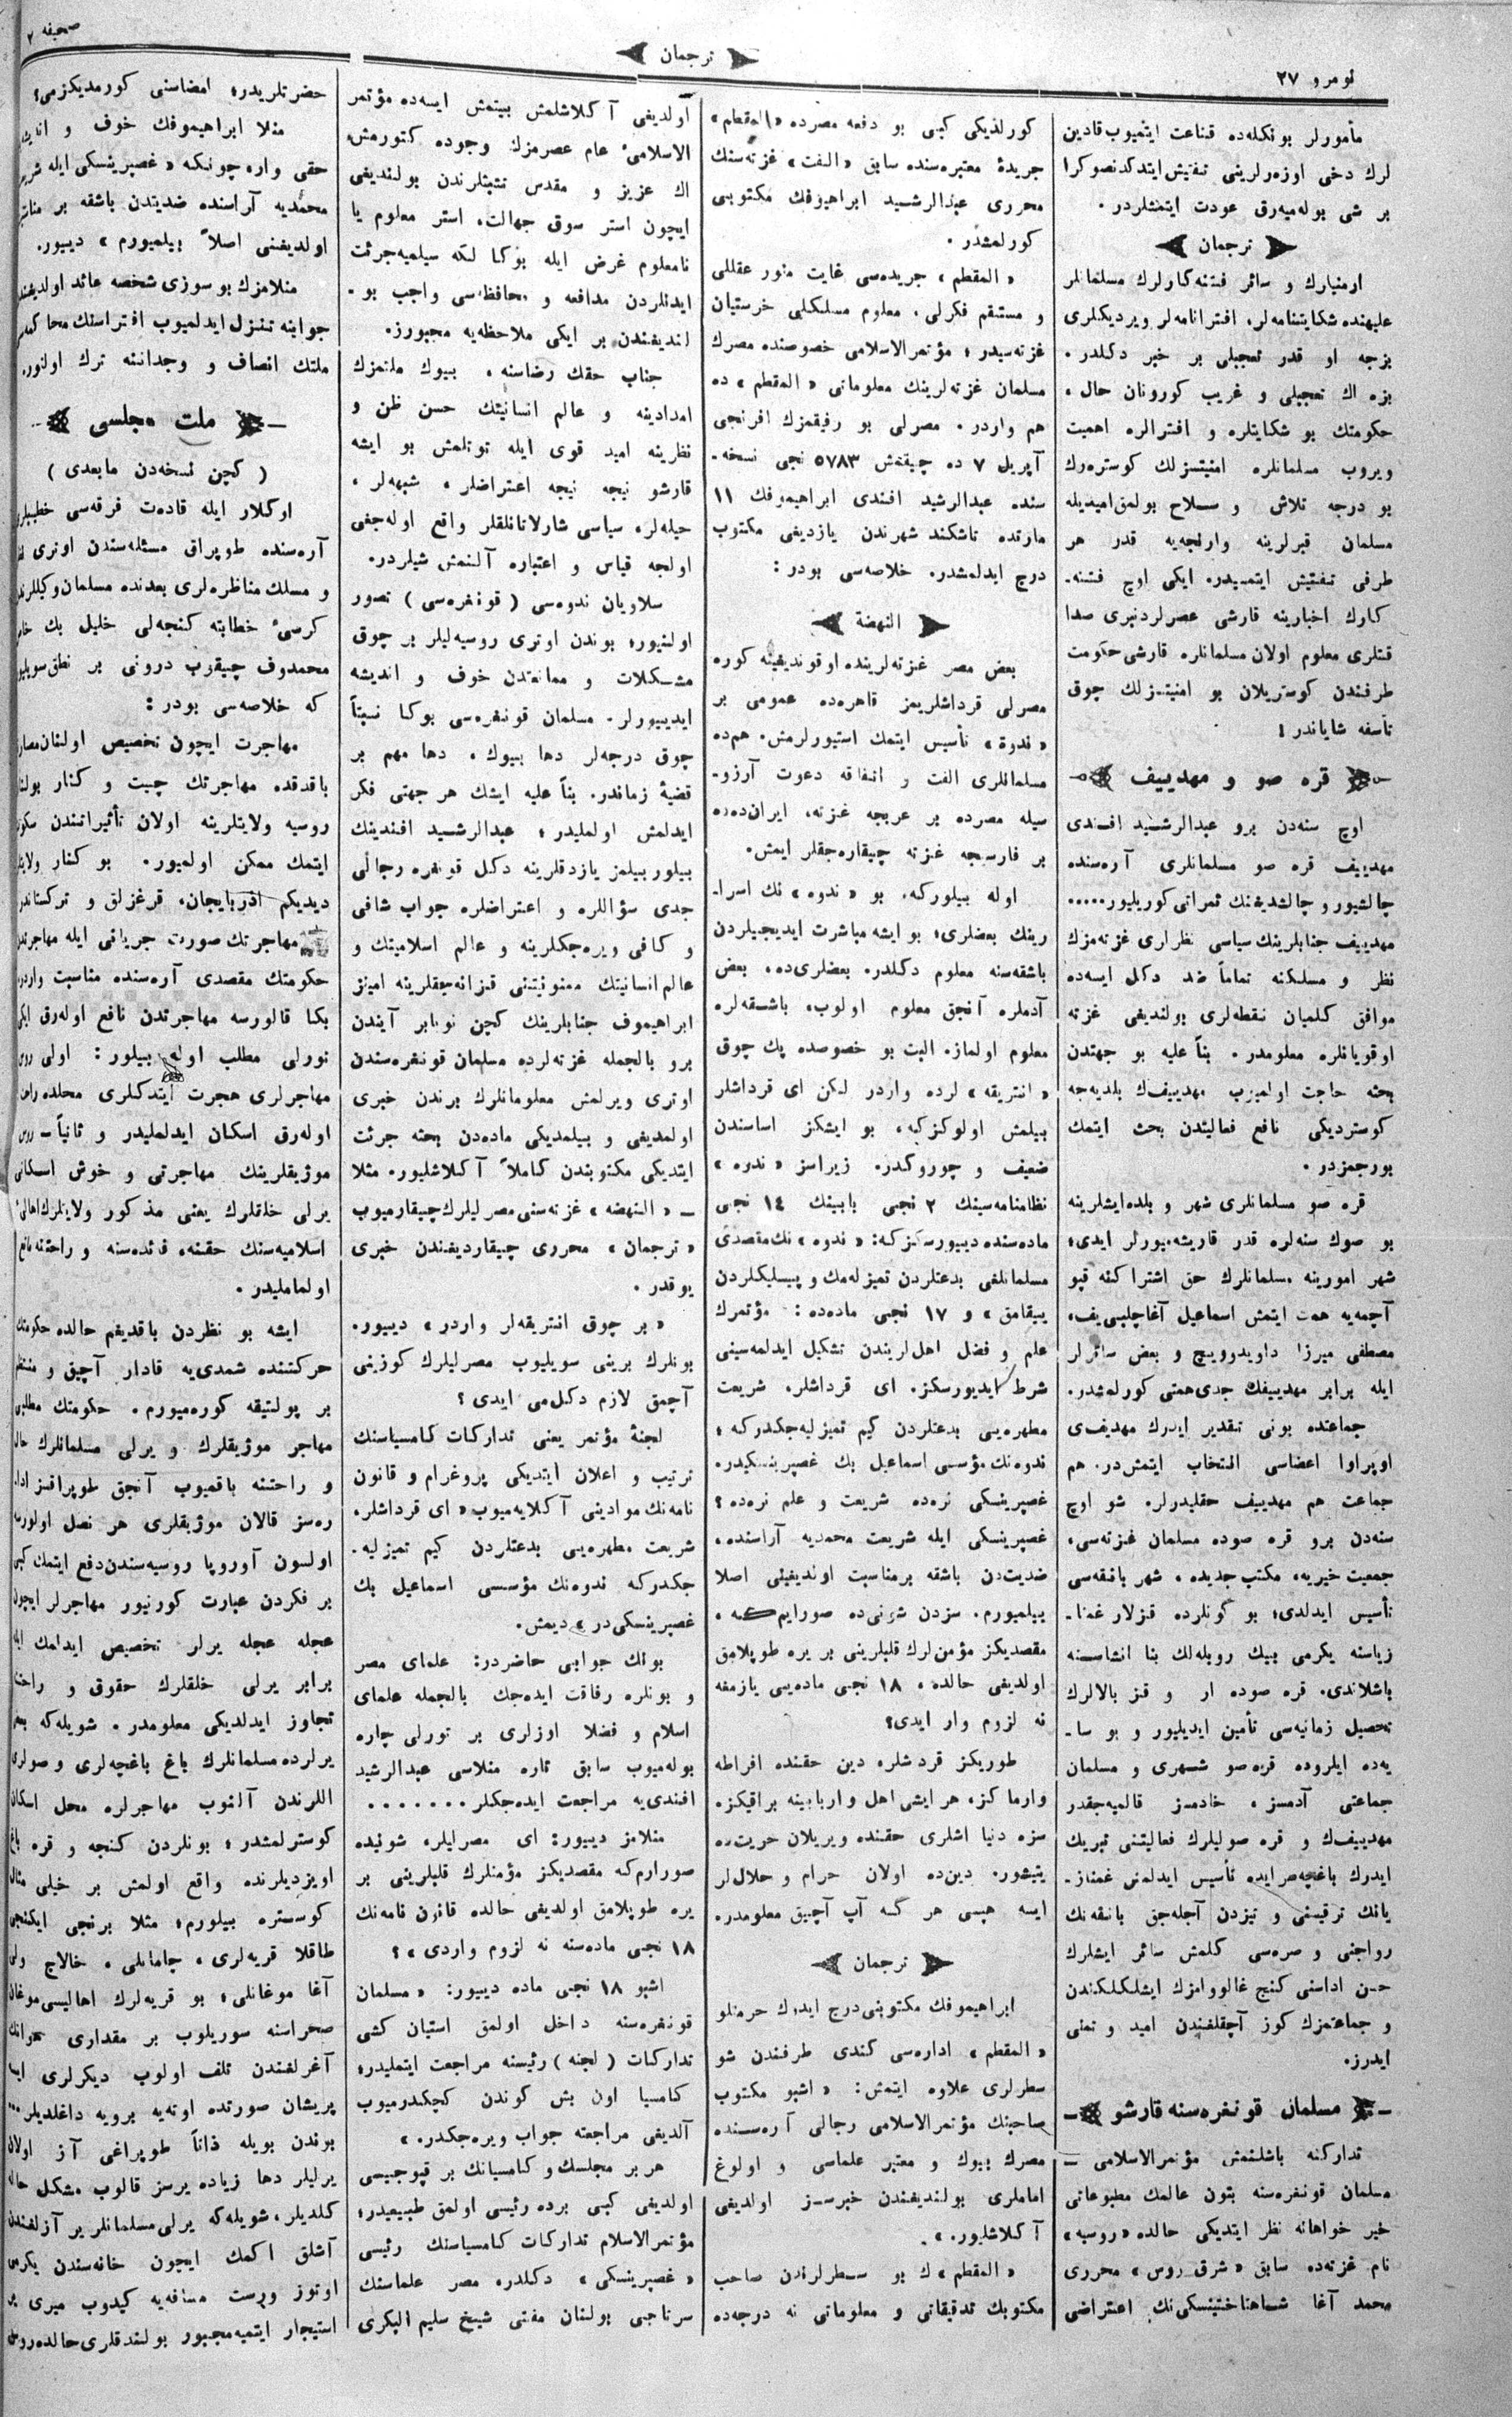 نومرو ٢٧
ترجمان
صحيفه ٢
مأمورلر بونكله‌ده قناعت ايتميوب قادين
لرك دخى اوزه‌رلرينى تفتيش ايتدكدنصوكرا
بر شى بوله‌ميه‌رق عودت ايتمشلردر .
ترجمان
ارمنيارك و سائر فتنه‌كارلرك مسلمانلر
عليهنده شكايتنامه‌لر، افترانامه‌لر ويرديكلرى
بزجه او قدر تعجبلى بر خبر دكلدر .
بزه اك تعجبلى و غريب كورونان حال ،
حكومتك بو شكايتلره و افترالره اهميت
ويروب مسلمانلره امنيتسزلك كوستره‌رك
بو درجه تلاش و سلاح بولمق‌اميديله
مسلمان قبرلرينه وارنجه‌يه قدر هر
طرفى تفتيش ايتميدر. ايكى اوچ فتنه‌-
كارك اخبارينه قارشى عصرلردنبرى صدا
قتلرى معلوم اولان مسلمانلره قارشى حكومت
طرفندن كوستريلان بو امنيتسزلك چوق
تأسفه شاياندر !
قره صو و مهدييف
اوچ سنه‌دن برو عبدالرشيد افندى
مهدييف قره صو مسلمانلرى آره‌سنده
چالشيور و چالشديغنك ثمراتى كوريليور.....
مهدييف جنابلرينك سياسى نظرارى غزته‌مزك
نظر و مسلكنه تماماً ضد دكل ايسه‌ده
موافق كلميان نقطه‌لرى بولنديغى غزته
اوقويانلره معلومدر. بناً عليه بو جهتدن
بحثه حاجت اولميوب مهدييف‌ك بلديه‌جه
كوسترديكى نافع فعاليتدن بحث ايتمك
بورجمزدر .
قره صو مسلمانلرى شهر و بلده‌ايشلرينه
بو صوك سنه‌لره قدر قاريشه‌ميورلر ايدى؛
شهر امورينه مسلمانلرك حق اشتراكنه قپو
آچمه‌يه همت ايتمش اسماعيل آغاچلبى‌يف،
مصطفى ميرزا داويدوويچ و بعض سائرلر
ايله برابر مهدييفك جدى‌همتى كورلمشدر.
جماعتده بونى تقدير ايدرك مهدييف‌ى
اوپراوا اعضاسى انتخاب ايتمش‌در. هم
جماعت هم مهدييف حقليدرلر. شو اوچ
سنه‌دن برو قره صوده مسلمان غزته‌سى،
جمعيت خيريه، مكتب جديده، شهر بانقه‌سى
تأسيس ايدلدى؛ بو كونلرده قزلار غمنا-
زياسنه يكرمى بيك روبله‌لك بنا انشاسنه
باشلاندى. قره صوده ار و قز بالالرك
تحصيل زمانيه‌سى تأمين ايديليور و بو سا-
يه‌ده ايلروده قره‌صو شهرى و مسلمان
جماعتى آدمسز ، خادمسز قالميه‌جقدر
مهدييف‌ك و قره صوليلرك فعاليتنى تبريك
ايدرك باغچه‌سرايده تأسيس ايدلمنى غمناز-
يانك ترقيسنى و تيزدن آچله‌جق بانقه‌نك
رواجنى و صره‌سى كلمش سائر ايشلرك
حسن اداسنى كنج غالووامزك ايشلكلكندن
و جماعتمزك كوز آچقلغندن اميد و تمنى
ايدرز.
مسلمان قونفره‌سنه قارشو
تداركنه باشلنمش مؤتمرالاسلامى —
مسلمان قونفره‌سنه بتون عالمك مطبوعاتى
خير خواهانه نظر ايتديكى حالده « روسيه »
نام غزته‌ده سابق « شرق روس » محررى
محمد آغا شاهتاختينسكى‌نك اعتراضى
كورلديكى كبى بو دفعه مصرده « المقطم »
جريدهٔ معتبره‌سنده سابق « الفت » غزته‌سنك
محررى عبدالرشيد ابراهيموفك مكتوبى
كورلمشدر .
« المقطم » جريده‌سى غايت منور عقللى
و مستقم فكرلى، معلوم مسلكلى خرستيان
غزته‌سيدر ؛ مؤتمرالاسلامى خصوصنده مصرك
مسلمان غزته‌لرينك معلوماتى « المقطم » ده
هم واردر. مصرلى بو رفيقمزك افرنجى
آپريل ٧ ده چيقمش ٥٧٨٣ نجى نسخه‌-
سنده عبدالرشيد افندى ابراهيموفك ١١
مارتده تاشكند شهرندن يازديغى مكتوب
درج ايدلمشدر. خلاصه‌سى بودر :
النهضة
بعض مصر غزته‌لرينده اوقونديغينه كوره
مصرلى قرداشلريمز قاهره‌ده عمومى بر
« ندوة » تأسيس ايتمك استيورلرمش. هم‌ده
مسلمانلرى الفت و اتفاقه دعوت آرزو-
سيله مصرده بر عربجه غزته، ايران‌ده‌ده
بر فارسجه غزته چيقاره‌جقلر ايمش.
اوله بيلوركه. بو « ندوه » نك اسرا-
رينك بعضلرى؛ بو ايشه مباشرت ايديجيلردن
باشقه‌سنه معلوم دكلدر. بعضلرى‌ده، بعض
آدملره آنجق معلوم اولوب، باشقه‌لره
معلوم اولماز. البت بو خصوصده پك چوق
« انتريقه » لرده واردر لكن اى قرداشلر
بيلمش اولوكزكه، بو ايشكز اساسندن
ضعيف و چوروكدر. زيراسز « ندوه »
نظامنامه‌سينك ٢ نجى بابينك ١٤ نجى
ماده‌سنده دييورسكزكه: « ندوه » نك‌مقصدى
مسلمانلغى بدعتلردن تميزله‌مك و پيسلكلردن
ييقامق » و ١٧ نجى ماده‌ده : مؤتمرك
علم و فضل اهل‌لريندن تشكيل ايدلمه‌سينى
شرط ايديورسكز. اى قرداشلر. شريعت
مطهره‌يى بدعتلردن كيم تميزليه‌جكدركه ؛
ندوه‌نك مؤسسى اسماعيل بك غصپرينسكيدر.
غصپرينسكى نره‌ده شريعت و علم نره‌ده ؟
غصپرينسكى ايله شريعت محمديه آراسنده،
ضديت‌دن باشقه برمناسبت اولديغينى اصلا
بيلميورم. سزدن شونى‌ده صورايم‌كه ،
مقصديكز مؤمن‌لرك قلبلرينى بر يره طوپلامق
اولديغى حالده ، ١٨ نجى ماده‌يى يازمغه
نه لزوم وار ايدى؟
طوريكز قردشلره دين حقنده افراطه
وارماكز، هر ايشى اهل و اربابينه براقيكز.
سزه دنيا اشلرى حقنده ويريلان حريت‌ده
يتيشور. دين‌ده اولان حرام و حلال‌لر
ايسه هپسى هر كسه آپ آچيق معلومدر،
ترجمان
ابراهيموفك مكتوبنى درج ايدرك حرمتلو
« المقطم » اداره‌سى كندى طرفندن شو
سطرلرى علاوه ايتمش: « اشبو مكتوب
صاحبنك مؤتمرالاسلامى رجالى آره‌سنده
مصرك بيوك و معتبر علماسى و اولوغ
اماملرى بولنديغندن خبرسز اولديغى
آكلاشليور. »
« المقطم » ك بو سطرلرندن صاحب
مكتوبك تدقيقاتى و معلوماتى نه درجه‌ده
اولديغى آكلاشلمش بيتمش ايسه‌ده مؤتمر
الاسلامئ عام عصرمزك وجوده كتورمش،
اك عزيز و مقدس تشبثلرندن بولنديغى
ايچون استر سوق جهالت، استر معلوم يا
نامعلوم غرض ايله بوكا لكه سيلميه‌جرئت
ايدنلردن مدافعه و محافظه‌سى واجب بو-
لنديغندن بر ايكى ملاحظه‌يه مجبورز.
جناب حقك رضاسنه ، بيوك ملتمزك
امدادينه و عالم انسانيتك حسن ظن و
نظرينه اميد قوى ايله توتلمش بو ايشه
قارشو نيجه نيجه اعتراضلر ، شبهه‌لر ،
حيله‌لر، سياسى شارلاتانلقلر واقع اوله‌جغى
اولجه قياس و اعتباره آلنمش شيلردر.
سلاويان ندوه‌سى ( قونفره‌سى ) تصور
اولنيور؛ بوندن اوترى روسيه‌ليلر بر چوق
مشكلات و ممانعتدن خوف و انديشه
ايدييورلر. مسلمان قونفره‌سى بوكا نسبتاً
چوق درجه‌لر دها بيوك ، دها مهم بر
قضيهٔ زماندر. بناً عليه ايشك هر جهتى فكر
ايدلمش اولمليدر ؛ عبدالرشيد افندينك
بيلور بيلمز يازدقلرينه دكل قونفره رجالى
جدى سؤاللره و اعتراضلره جواب شافى
و كافى ويره‌جكلرينه و عالم اسلاميتك و
عالم‌انسانيتك ممنونيتنى قزانه‌جقلرينه امينز
ابراهيموف جنابلرينك كچن نويابر آيندن
برو بالجمله غزته‌لرده مسلمان قونفره‌سندن
اوترى ويرلمش معلوماتلرك برندن خبرى
اولمديغى و بيلمديكى ماده‌دن بحثه جرئت
ايتديكى مكتوبندن كاملاً آكلاشليور. مثلا
— « النهضه » غزته‌سنى مصرليلرك‌چيقارميوب
« ترجمان » محررى چيقارديغندن خبرى
يوقدر .
« بر چوق انتريقه‌لر واردر » دييور.
بونلرك برينى سويليوب مصرليلرك كوزينى
آچمق لازم دكل‌مى ايدى ؟
لجنهٔ مؤتمر يعنى تداركات كامسياسنك
ترتيب و اعلان ايتديكى پروغرام و قانون
نامه‌نك موادينى آكلايه‌ميوب « اى قرداشلر.
شريعت مطهره‌يى بدعتلردن كيم تميزليه‌-
جكدركه ندوه‌نك مؤسسى اسماعيل بك
غصپرينسكى‌در » ديمش.
بونك جوابى حاضردر: علماى مصر
و بونلره رفاقت ايده‌جك بالجمله علماى
اسلام و فضلا اوزلرى بر تورلى چاره
بوله‌ميوب سابق تاره منلاسى عبدالرشيد
افندى‌يه مراجعت ايده‌جكلر.......
منلامز دييور: اى مصرليلر، شونيده
صورارم‌كه مقصديكز مؤمنلرك قلبلرينى بر
يره طوپلامق اولديغى حالده قانون نامه‌نك
١٨ نجى ماده‌سنه نه لزوم واردى » ؟
اشبو ١٨ نجى ماده دييور: « مسلمان
قونفره‌سنه داخل اولمق استيان كشى
تداركات ( لجنه ) رئيسنه مراجعت ايتمليدر؛
كامسيا اون بش كوندن كچكدرميوب
آلديغى مراجعته جواب ويره‌جكدر. »
هر بر مجلسك و كامسيانك بر قپوجيسى
اولديغى كبى برده رئيسى اولمق طبيعيدر؛
مؤتمرالاسلام تداركات كامسياسنك رئيسى
« غصپرينسكى » دكلدر، مصر علماسنك
سرتاجى بولنان مفتى شيخ سليم البكرى
حضرتلريدر؛ امضاسنى كورمديكزمى؟
منلا ابراهيموفك خوف و
حقى وار، چونكه « غصپرينسكى ايله
محمديه آراسنده ضديتدن باشقه بر
اولديغنى اصلاً بيلميورم » دييور.
منلامزك بو سوزى شخصه عائد
جوابنه تنزل ايدلميوب افتراسنك
ملتك انصاف و وجداننه ترك اولنور.
ملت مجلسى
( كچن نسخه‌دن مابعدى )
اوكلار ايله قاده‌ت فرقه‌سى
آره‌سنده طوپراق مسئله‌سندن اوترى
و مسلك مناظره‌لرى بعدنده مسلمان
كرسئ خطابته كنجه‌لى خليل بك
محمدوف چيقوب درونى بر نطق
كه خلاصه‌سى بودر :
مهاجرت ايچون تخصيص اولنان
باقدقده مهاجرتك چيت و كنار
روسيه ولايتلرينه اولان تأثيراتندن
ايتمك ممكن اولميور. بو كنار
ديديكم اذربايجان، قرغزلق و
مهاجرتك صورت جريانى ايله
حكومتك مقصدى آره‌سنده مناسبت واردر.
بكا قالورسه مهاجرتدن نافع اوله‌رق
تورلى مطلب اوله بيلور : اولى
مهاجرلرى هجرت ايتدكلرى محلده
اوله‌رق اسكان ايدلمليدر و ثانياً —
موژيقلرينك مهاجرتى و خوش
يرلى خلقلرك يعنى مذكور
اسلاميه‌سنك حقنه، فائده‌سنه و راحتنه
اولمامليدر .
ايشه بو نظردن باقديغم حالده
حركتنده شمدى‌يه قادار آچيق و
بر پولتيقه كوره‌ميورم. حكومتك
مهاجر موژيقلرك و يرلى مسلمانلرك
و راحتنه باقميوب آنجق طوپراقسز
ره‌سز قالان موژيقلرى هر نصل
اولسون آوروپا روسيه‌سندن دفع ايتمك
بر فكردن عبارت كورنيور مهاجرلر
عجله عجله يرلر تخصيص ايدلمك
برابر يرلى خلقلرك حقوق و
تجاوز ايدلديكى معلومدر. شويله‌كه
يرلرده مسلمانلرك باغ باغچه‌لرى و
اللرندن آلنوب مهاجرلره محل
كوسترلمشدر ؛ بونلردن كنجه و قره
اويزديلرنده واقع اولمش بر خيلى
كوستره بيلورم؛ مثلا برنجى
طاقلا قريه‌لرى ، جامانلى ، خالاج
آغا موغانلى ؛ بو قريه‌لرك اهاليسى
صحراسنه سوريلوب بر مقدارى
آغرلغندن تلف اولوب ديكرلرى
پريشان صورتده اوته‌يه برويه
بوندن بويله ذاتاً طوپراغى آز
يرليلر دها زياده يرسز قالوب مشكل
كلديلر، شويله‌كه يرلى مسلمانلر
آشلق اكمك ايچون خانه‌سندن
اوتوز ورست مسافه‌يه كيدوب ميرى
استيجار ايتميه مجبور بولندقلرى حالده